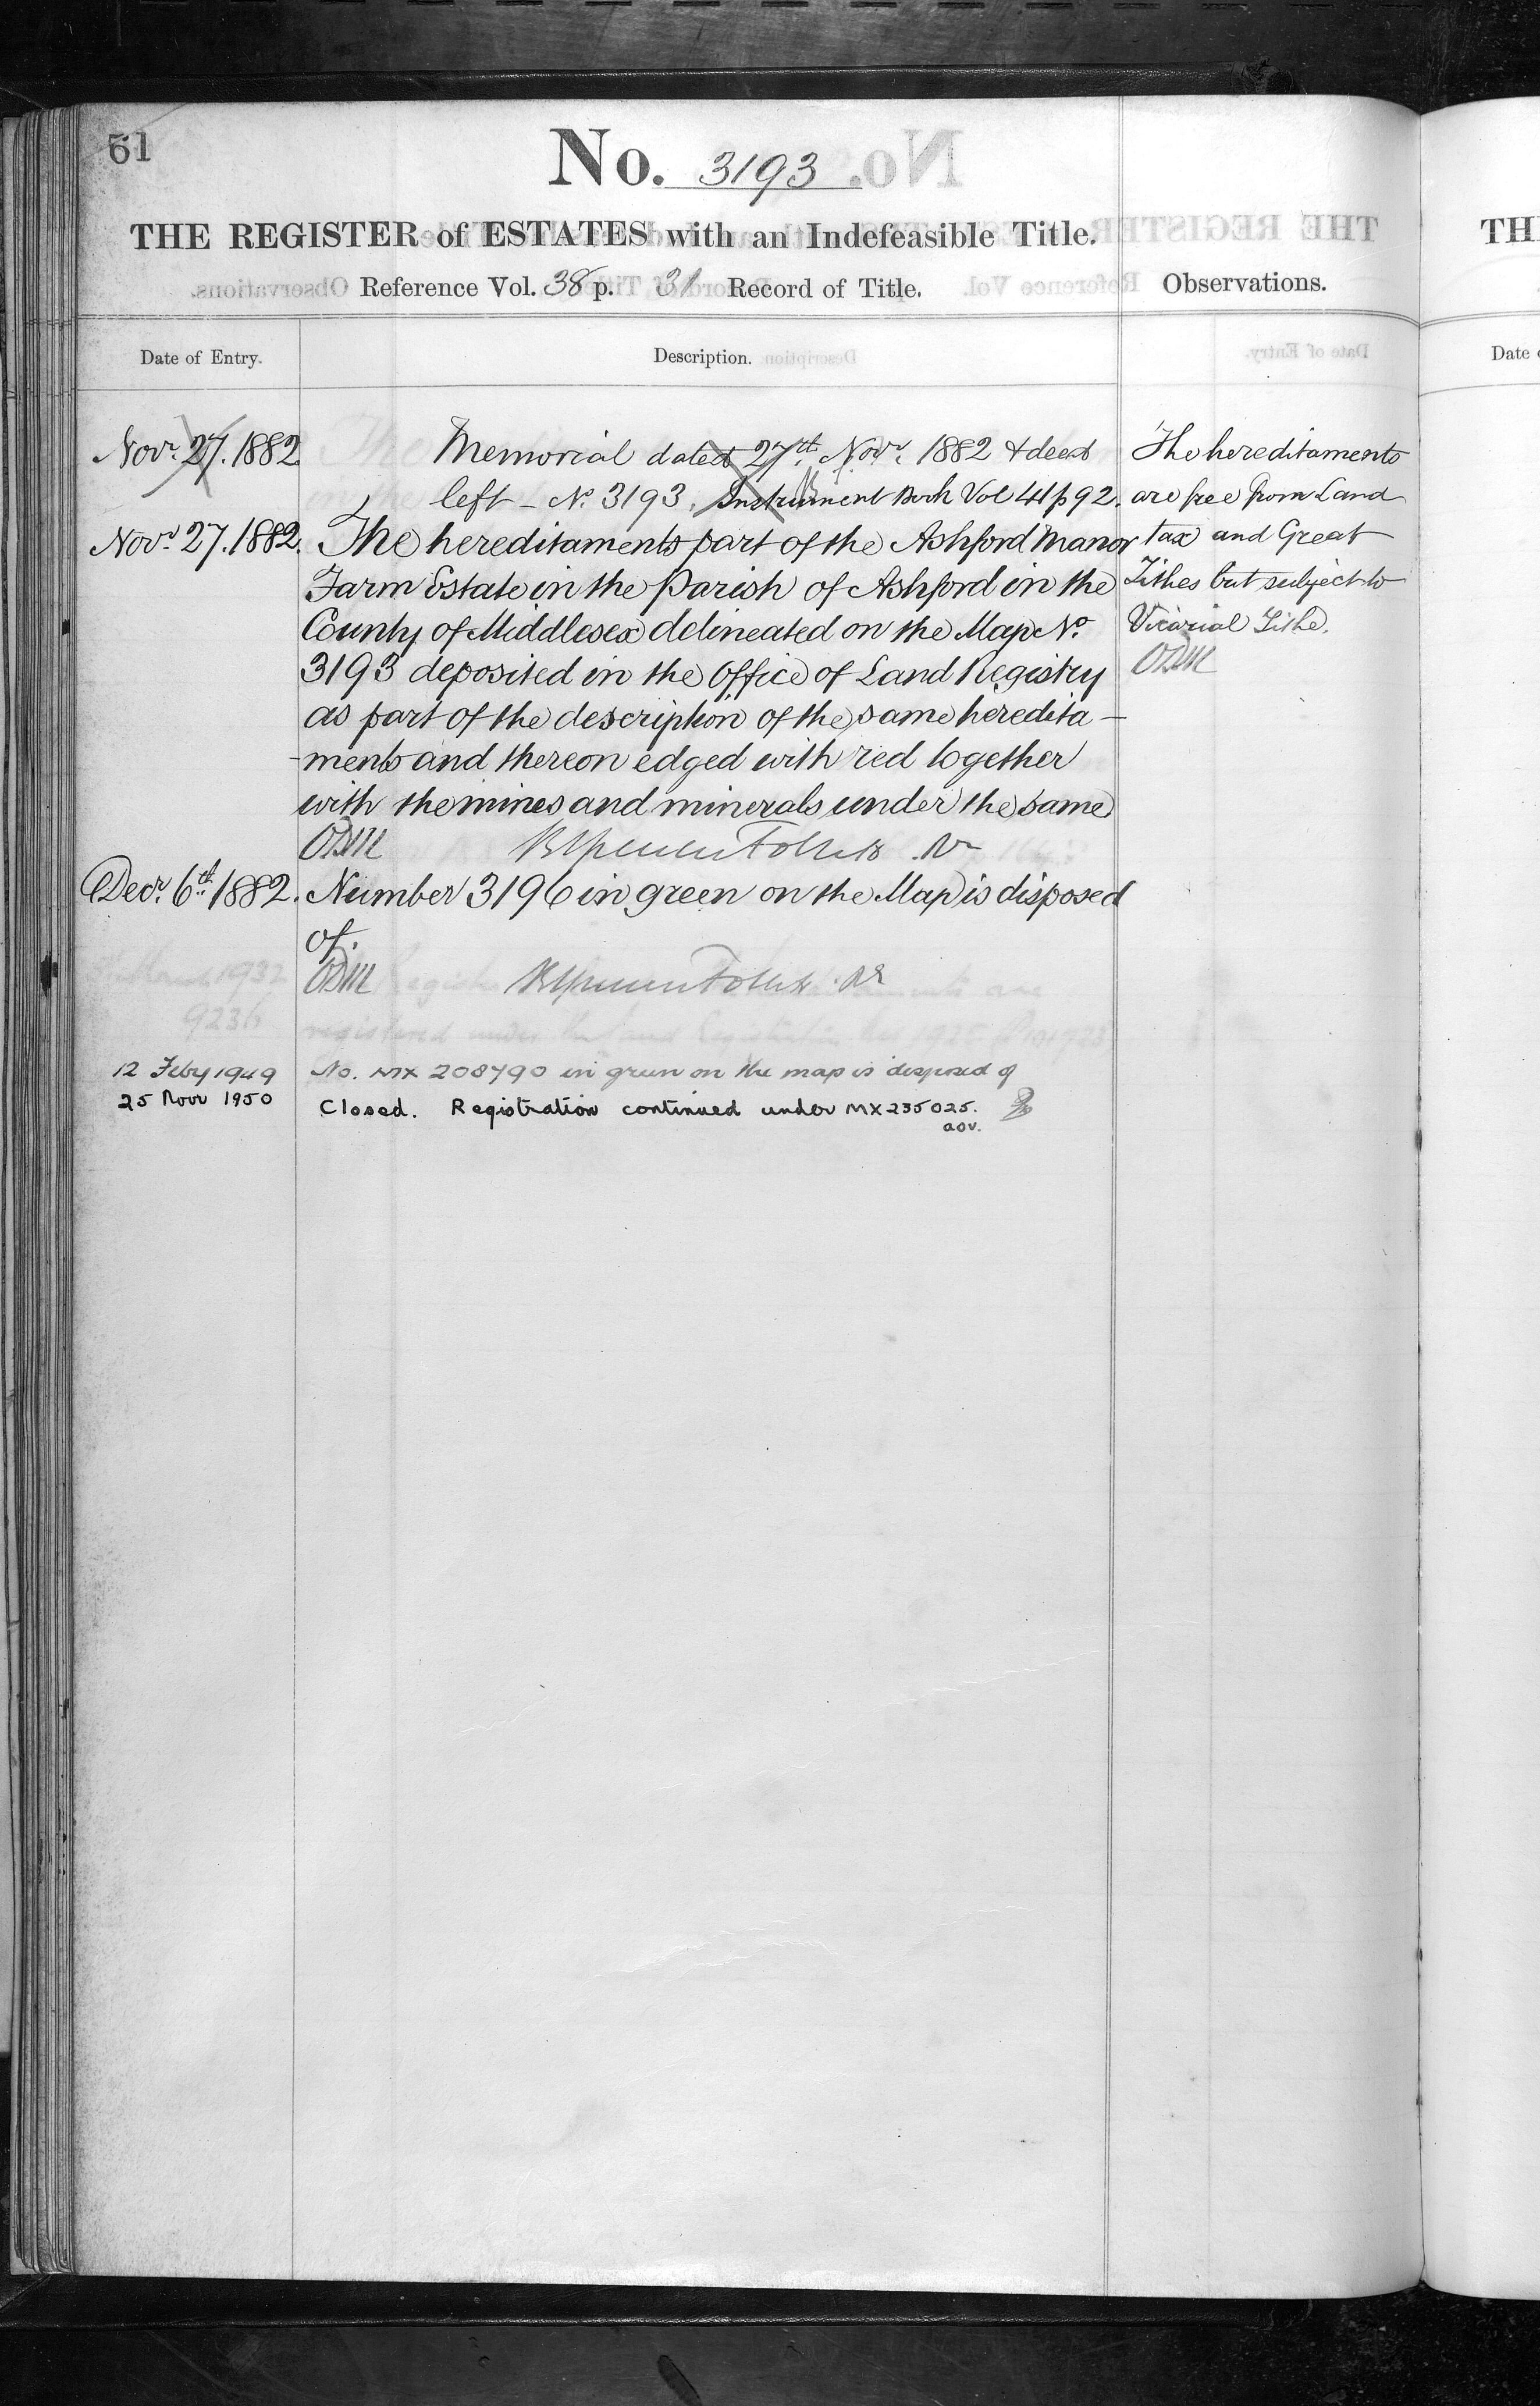 61
No. 3193
THE REGISTER of ESTATES with an Indefeasible Title.
Reference Vol. 38 p. 31 Record of Title.
Observations.
Date of Entry.
Description.
Novr. 27. 1882
Memorial dated 27th. Novr. 1882 & deed
left - No. 3193. Instrument Book Vol 41 p 92.
Novr. 27. 1882.
The hereditaments part of the Ashford Manor
Farm Estate in the Parish of Ashford in the
County of Middlesex delineated on the Map No.
3193 deposited in the Office of Land Registry
as part of the description of the same heredita-
-ments and thereon edged with red together
with the mines and minerals under the same
Decr. 6th. 1882.
Number 3196 in green on the Map is disposed
of.
12 Feby 1949
No. MX 208790 in green on the map is disposed of
25 Novr 1950
Closed. Registration continued under MX235025.
The hereditaments
are free from Land
tax and Great
Tithes but subject to
Vicarial Tithe.
TH
Date